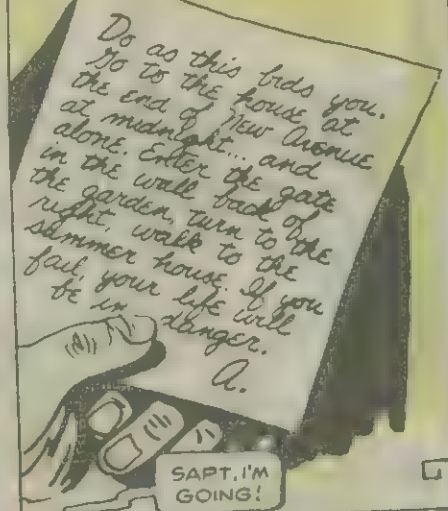 Do as this bids you.
Go to the house at
the end of New Avenue
at midnight... and
alone. Enter the gate
in the wall back of
the garden, turn to the
right, walk to the
summer house. If you
fail, your life will
be in danger.
A.
SAPT, I'M
GOING!